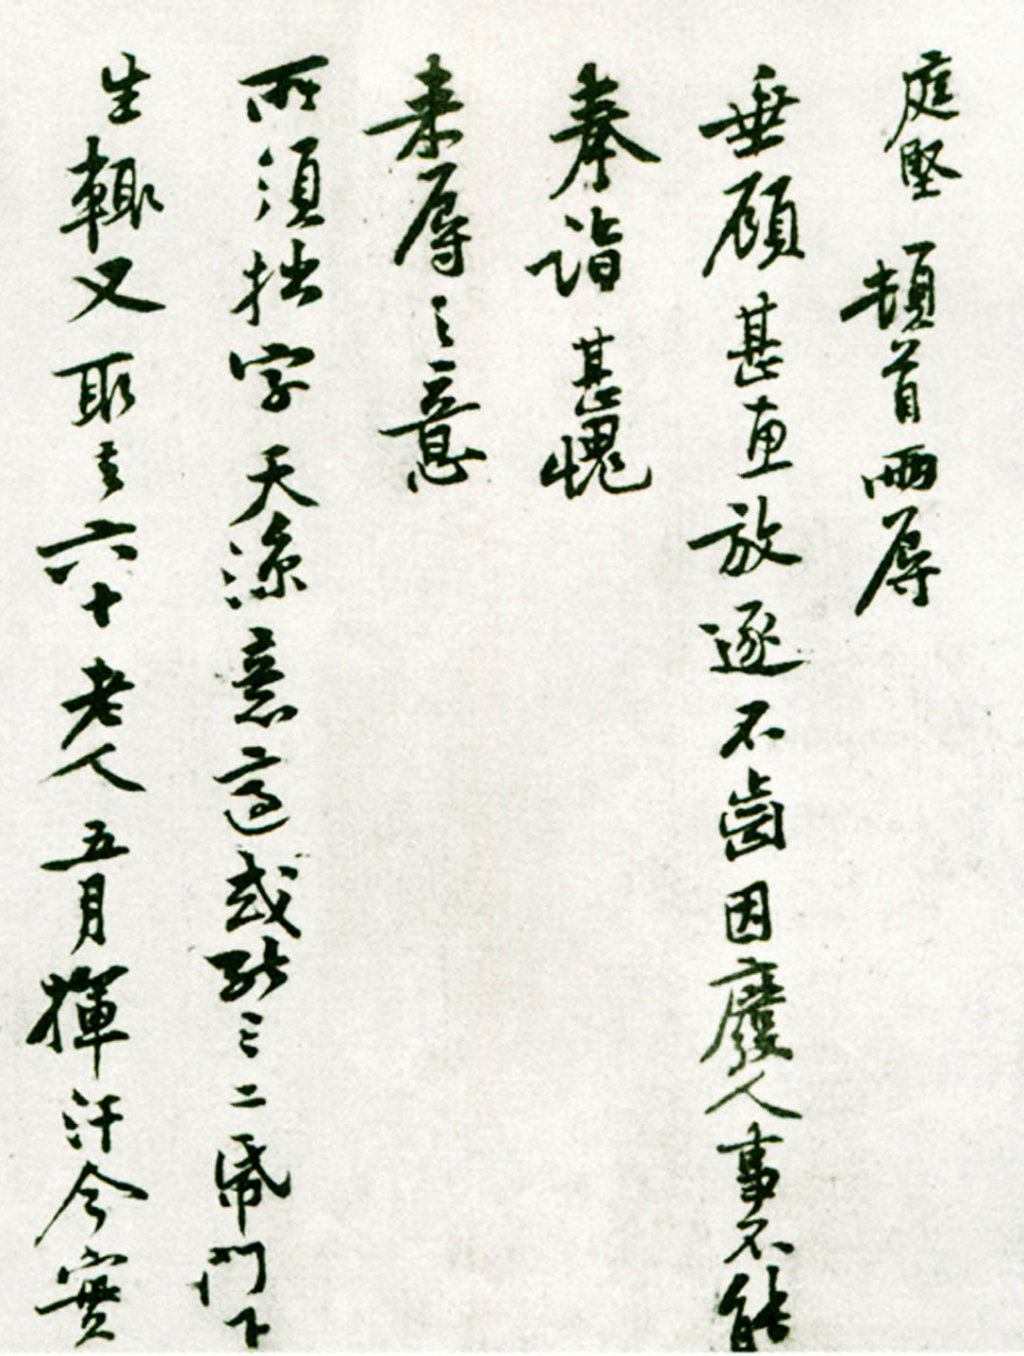 庭堅頓首兩辱
垂顧甚惠放逐不齒因廢人事不能
奉詣甚愧
来辱之意
所須拙字天凉意適或能三二紙門下
生輙又取去六十老人五月揮汗今實